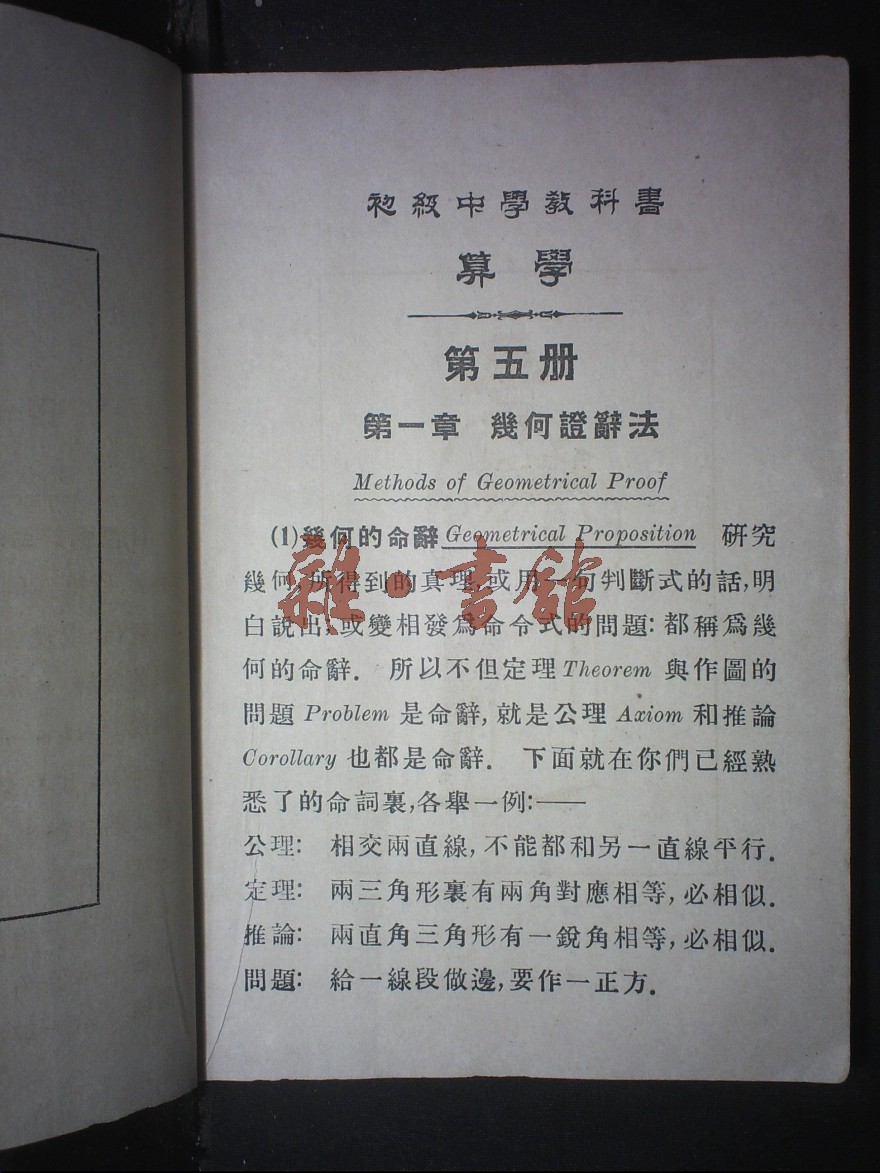 初級中學教科書
算學
第五册
第一章 幾何證辭法
Methods of Geometrical Proof
(1)幾何的命辭 Geometrical Proposition 研究
幾何,所得到的真理,或用一句判斷式的話,明
白說出,或變相發爲命令式的問題: 都稱爲幾
何的命辭. 所以不但定理 Theorem 與作圖的
問題 Problem 是命辭, 就是公理 Axiom 和推論
Corollary 也都是命辭. 下面就在你們已經熟
悉了的命詞裏,各舉一例:——
公理: 相交兩直線, 不能都和另一直線平行.
定理: 兩三角形裏有兩角對應相等, 必相似.
推論: 兩直角三角形有一銳角相等, 必相似.
問題: 給一線段做邊, 要作一正方.
雜·書館